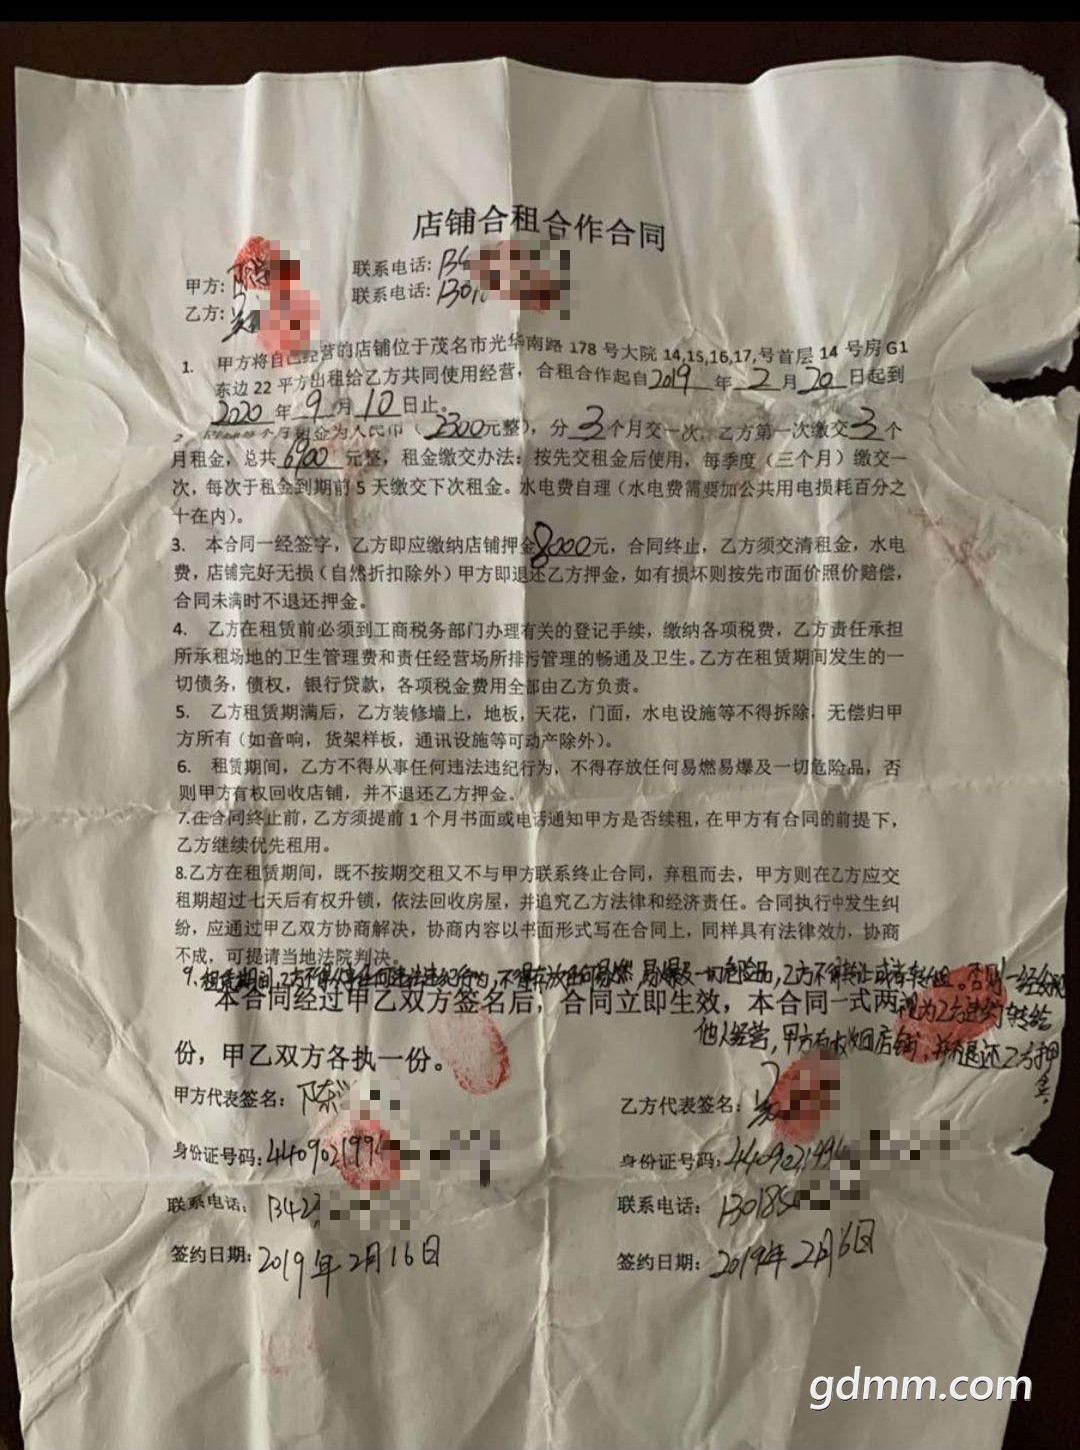 店铺合租合作合同
甲方: 联系电话: 134
乙方: 联系电话: 1301
1. 甲方将自己经营的店铺位于茂名市光华南路 178 号大院 14,15,16,17,号首层 14 号房 G1
东边 22 平方出租给乙方共同使用经营，合租合作起自2019 年 2 月 20 日起到
2020 年 9 月 10 日止。
月租金为人民币（2300元整），分 3 个月交一次，乙方第一次缴交 3 个
月租金，总共 6900 元整，租金缴交办法：按先交租金后使用，每季度（三个月）缴交一
次，每次于租金到期前 5 天缴交下次租金。水电费自理（水电费需要加公共用电损耗百分之
十在内）。
3. 本合同一经签字，乙方即应缴纳店铺押金8000元，合同终止，乙方须交清租金，水电
费，店铺完好无损（自然折扣除外）甲方即退还乙方押金，如有损坏则按先市面价照价赔偿，
合同未满时不退还押金。
4. 乙方在租赁前必须到工商税务部门办理有关的登记手续，缴纳各项税费，乙方责任承担
所承租场地的卫生管理费和责任经营场所排污管理的畅通及卫生。乙方在租赁期间发生的一
切债务，债权，银行贷款，各项税金费用全部由乙方负责。
5. 乙方租赁期满后，乙方装修墙上，地板，天花，门面，水电设施等不得拆除，无偿归甲
方所有（如音响，货架样板，通讯设施等可动产除外）。
6. 租赁期间，乙方不得从事任何违法违纪行为，不得存放任何易燃易爆及一切危险品，否
则甲方有权回收店铺，并不退还乙方押金。
7.在合同终止前，乙方须提前 1 个月书面或电话通知甲方是否续租，在甲方有合同的前提下，
乙方继续优先租用。
8.乙方在租赁期间，既不按期交租又不与甲方联系终止合同，弃租而去，甲方则在乙方应交
租期超过七天后有权升锁，依法回收房屋，并追究乙方法律和经济责任。合同执行中发生纠
纷，应通过甲乙双方协商解决，协商内容以书面形式写在合同上，同样具有法律效力，协商
不成，可提请当地法院判决。
9.租赁期间,乙方不得从事任何违法违纪行为,不得存放任何易燃易爆及一切危险品,乙方不得转让或者转租。否则一经发现
视为乙方违约转给
他人经营,甲方有权收回店铺,并不退还乙方押
金。
本合同经过甲乙双方签名后，合同立即生效，本合同一式两
份，甲乙双方各执一份。
甲方代表签名: 陈
乙方代表签名:
身份证号码:440902199
身份证号码:440902199
联系电话: 13423
联系电话: 130185
签约日期: 2019年2月16日
签约日期: 2019年2月16日
gdmm.com